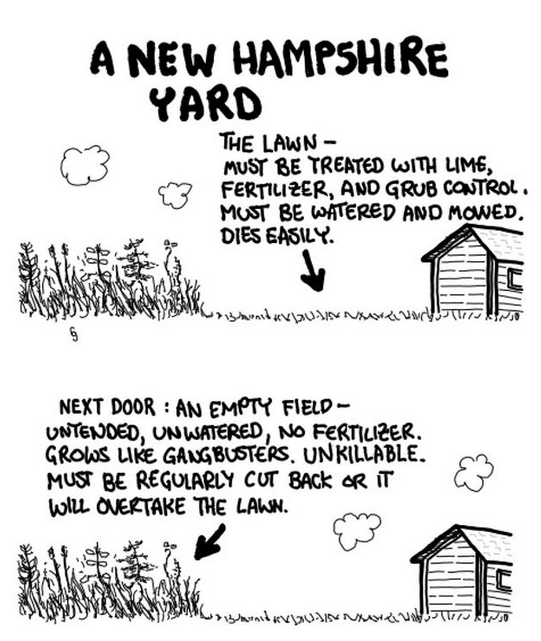 A NEW HAMPSHIRE
YARD
THE LAWN –
MUST BE TREATED WITH LIME,
FERTILIZER, AND GRUB CONTROL.
MUST BE WATERED AND MOWED.
DIES EASILY.
NEXT DOOR : AN EMPTY FIELD –
UNTENDED, UNWATERED, NO FERTILIZER.
GROWS LIKE GANGBUSTERS. UNKILLABLE.
MUST BE REGULARLY CUT BACK OR IT
WILL OVERTAKE THE LAWN.